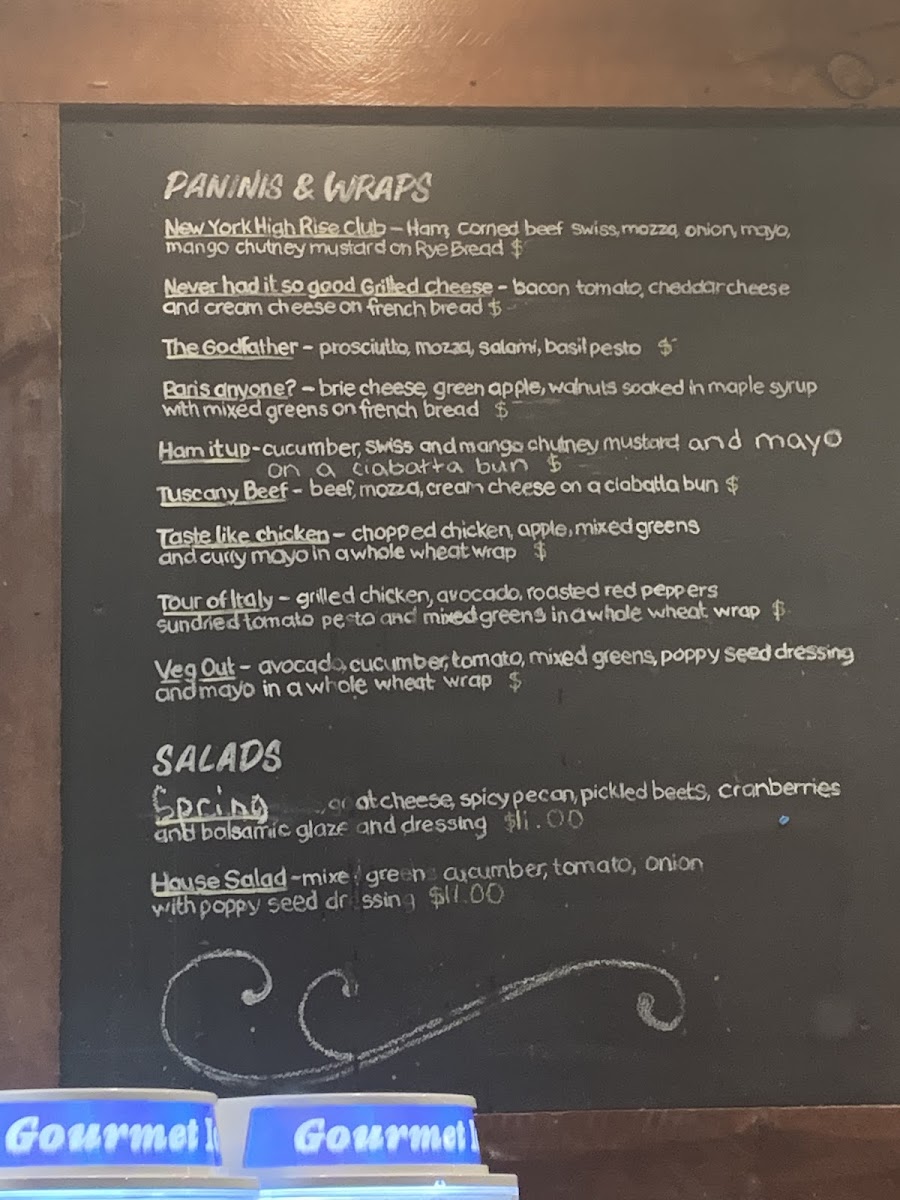 PANINIS & WRAPS
New York High Rise Club - Ham, corned beef swiss, mozza, onion, mayo,
mango chutney mustard on Rye Bread $
Never had it so good Grilled cheese - bacon tomato, cheddar cheese
and cream cheese on french bread $
The Godfather - prosciutto, mozza, salami, basil pesto $
Paris anyone? - brie cheese, green apple, walnuts soaked in maple syrup
with mixed greens on french bread $
Ham it up - cucumber, swiss and mango chutney mustard and mayo
on a ciabatta bun $
Tuscany Beef - beef, mozza, cream cheese on a ciabatta bun $
Taste like chicken - chopped chicken, apple, mixed greens
and curry mayo in a whole wheat wrap $
Tour of Italy - grilled chicken, avocado, roasted red peppers
sundried tomato pesto and mixed greens in a whole wheat wrap $
Veg Out - avocado, cucumber, tomato, mixed greens, poppy seed dressing
and mayo in a whole wheat wrap $
SALADS
Spring cheese, spicy pecan, pickled beets, cranberries
and balsamic glaze and dressing $11.00
House Salad - mixe green cucumber, tomato, onion
with poppy seed dressing $11.00
Gourmet
Gourmet